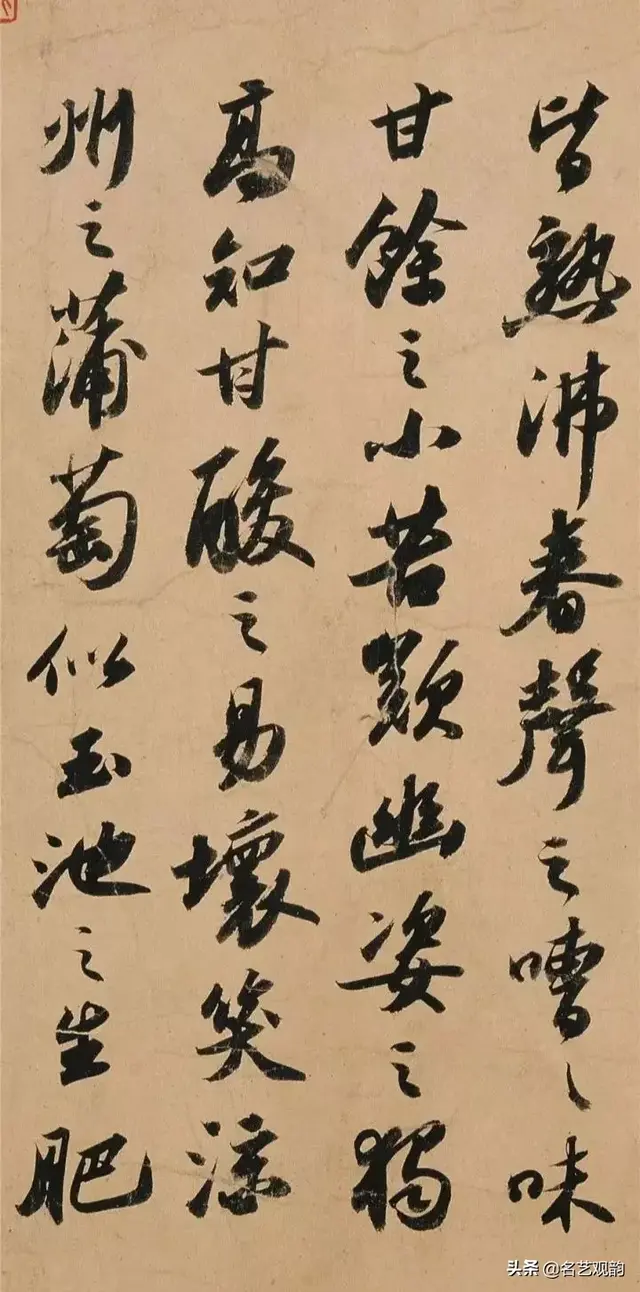 皆熟沸春聲之嘈〻味
甘餘之小苦歎幽姿之獨
高知甘酸之易壞笑涼
州之蒲萄似玉池之生肥
头条 @名艺观韵